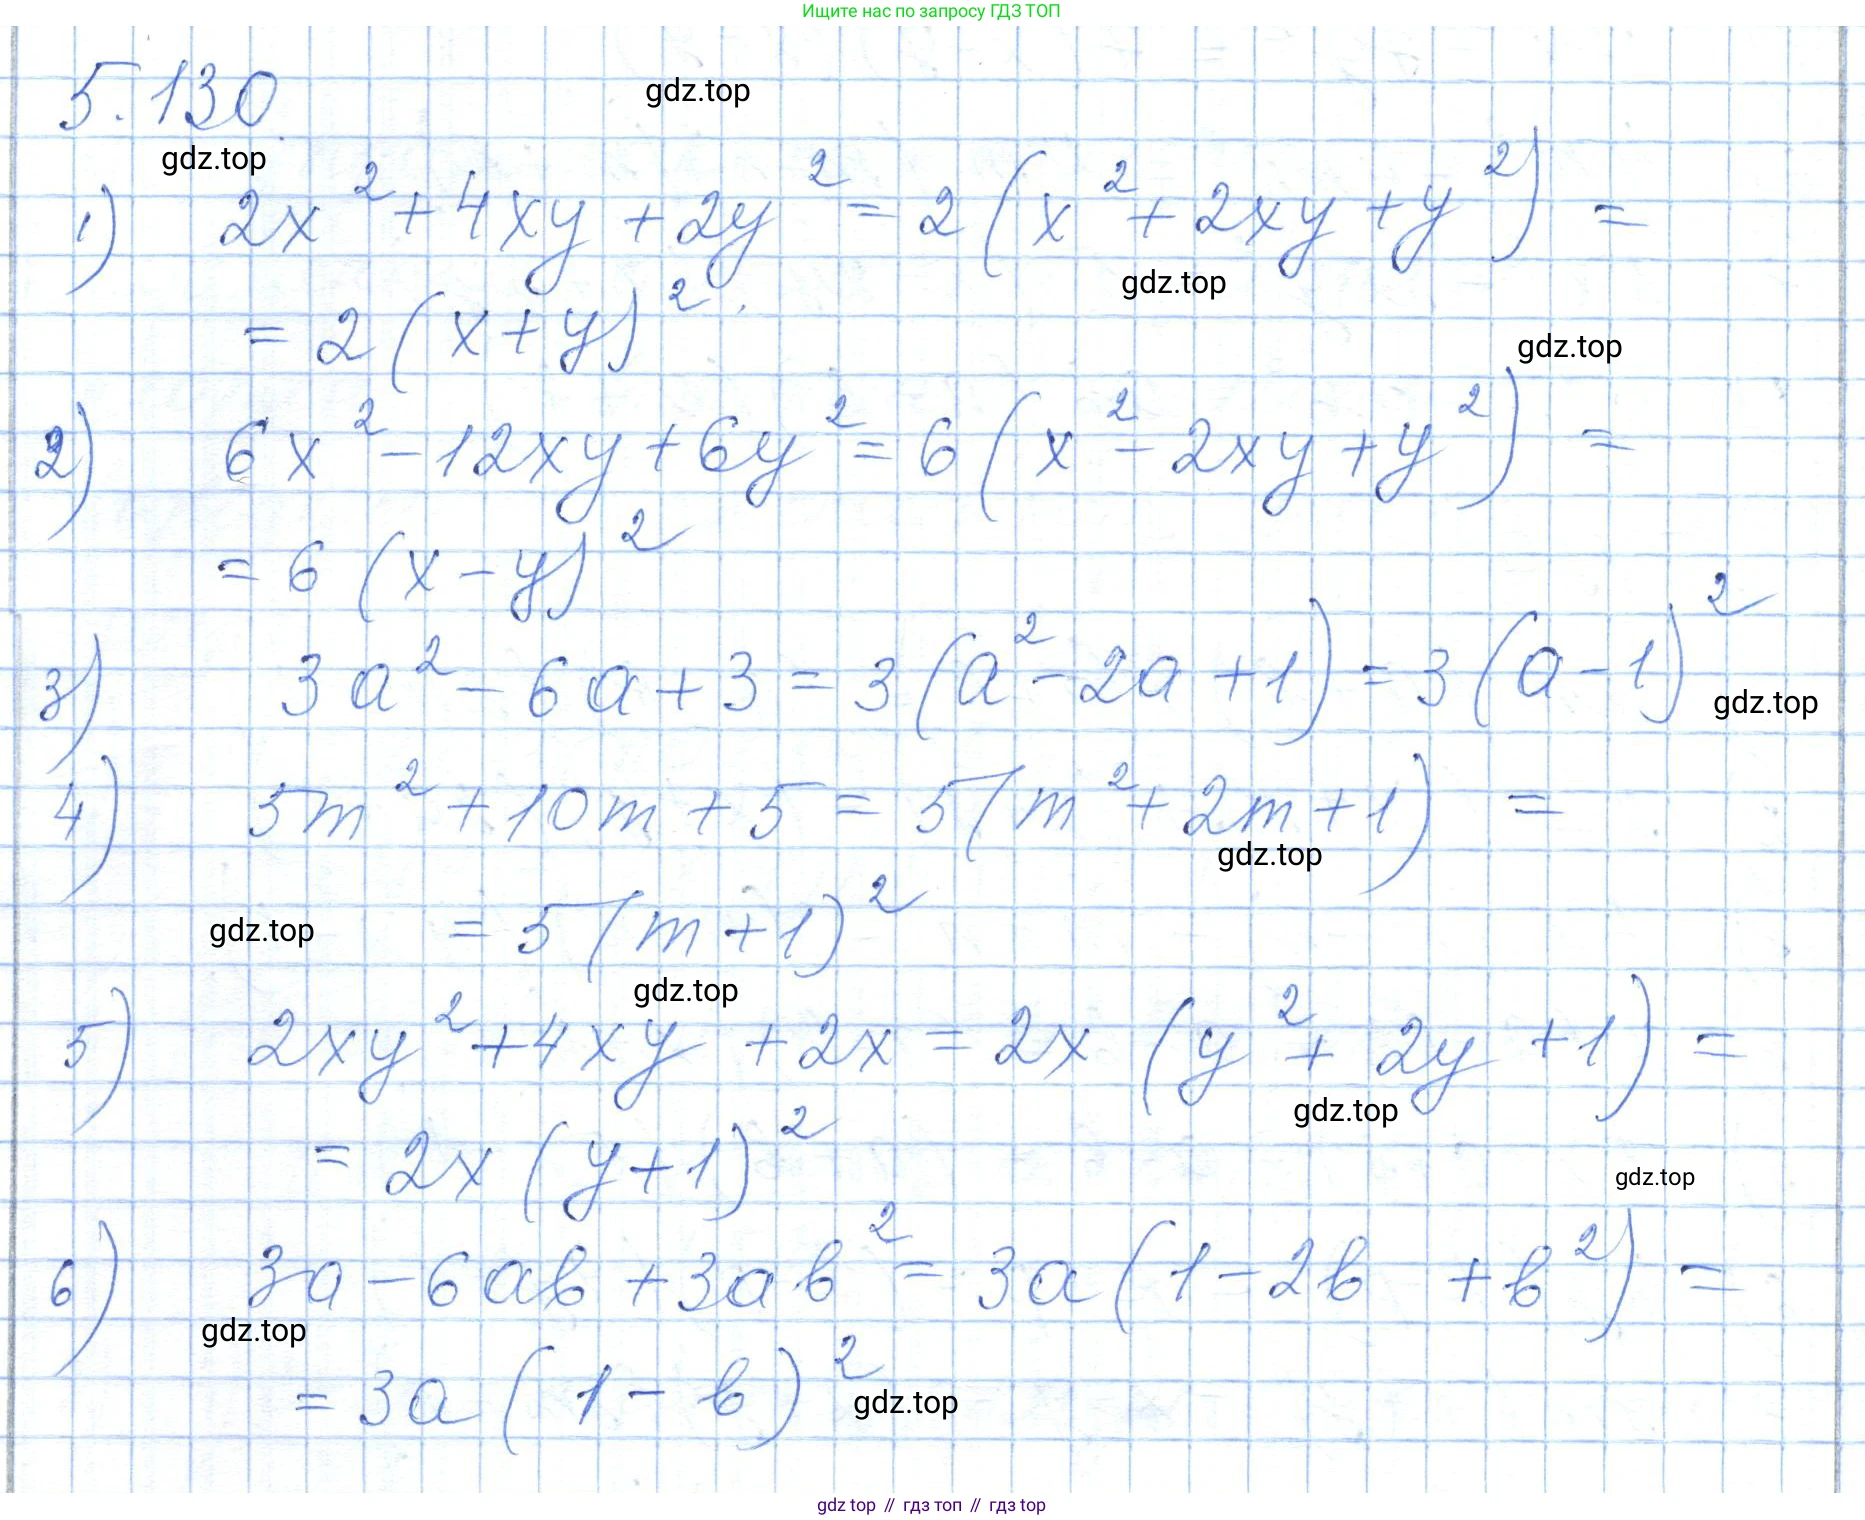 Ищите нас по запросу ГДЗ ТОП
5.130.
gdz.top
gdz.top
1) 2x² + 4xy + 2y² = 2(x² + 2xy + y²) =
gdz.top
= 2(x+y)².
gdz.top
2) 6x² - 12xy + 6y² = 6(x² - 2xy + y²) =
= 6(x-y)²
3) 3a² - 6a + 3 = 3(a² - 2a + 1) = 3(a-1)²
gdz.top
4) 5m² + 10m + 5 = 5(m² + 2m + 1) =
gdz.top
gdz.top
= 5(m+1)²
gdz.top
5) 2xy² + 4xy + 2x = 2x(y² + 2y + 1) =
gdz.top
= 2x(y+1)²
gdz.top
6) 3a - 6ab + 3ab² = 3a(1 - 2b + b²) =
gdz.top
= 3a(1 - b)²
gdz.top
gdz top // гдз топ // гдз top